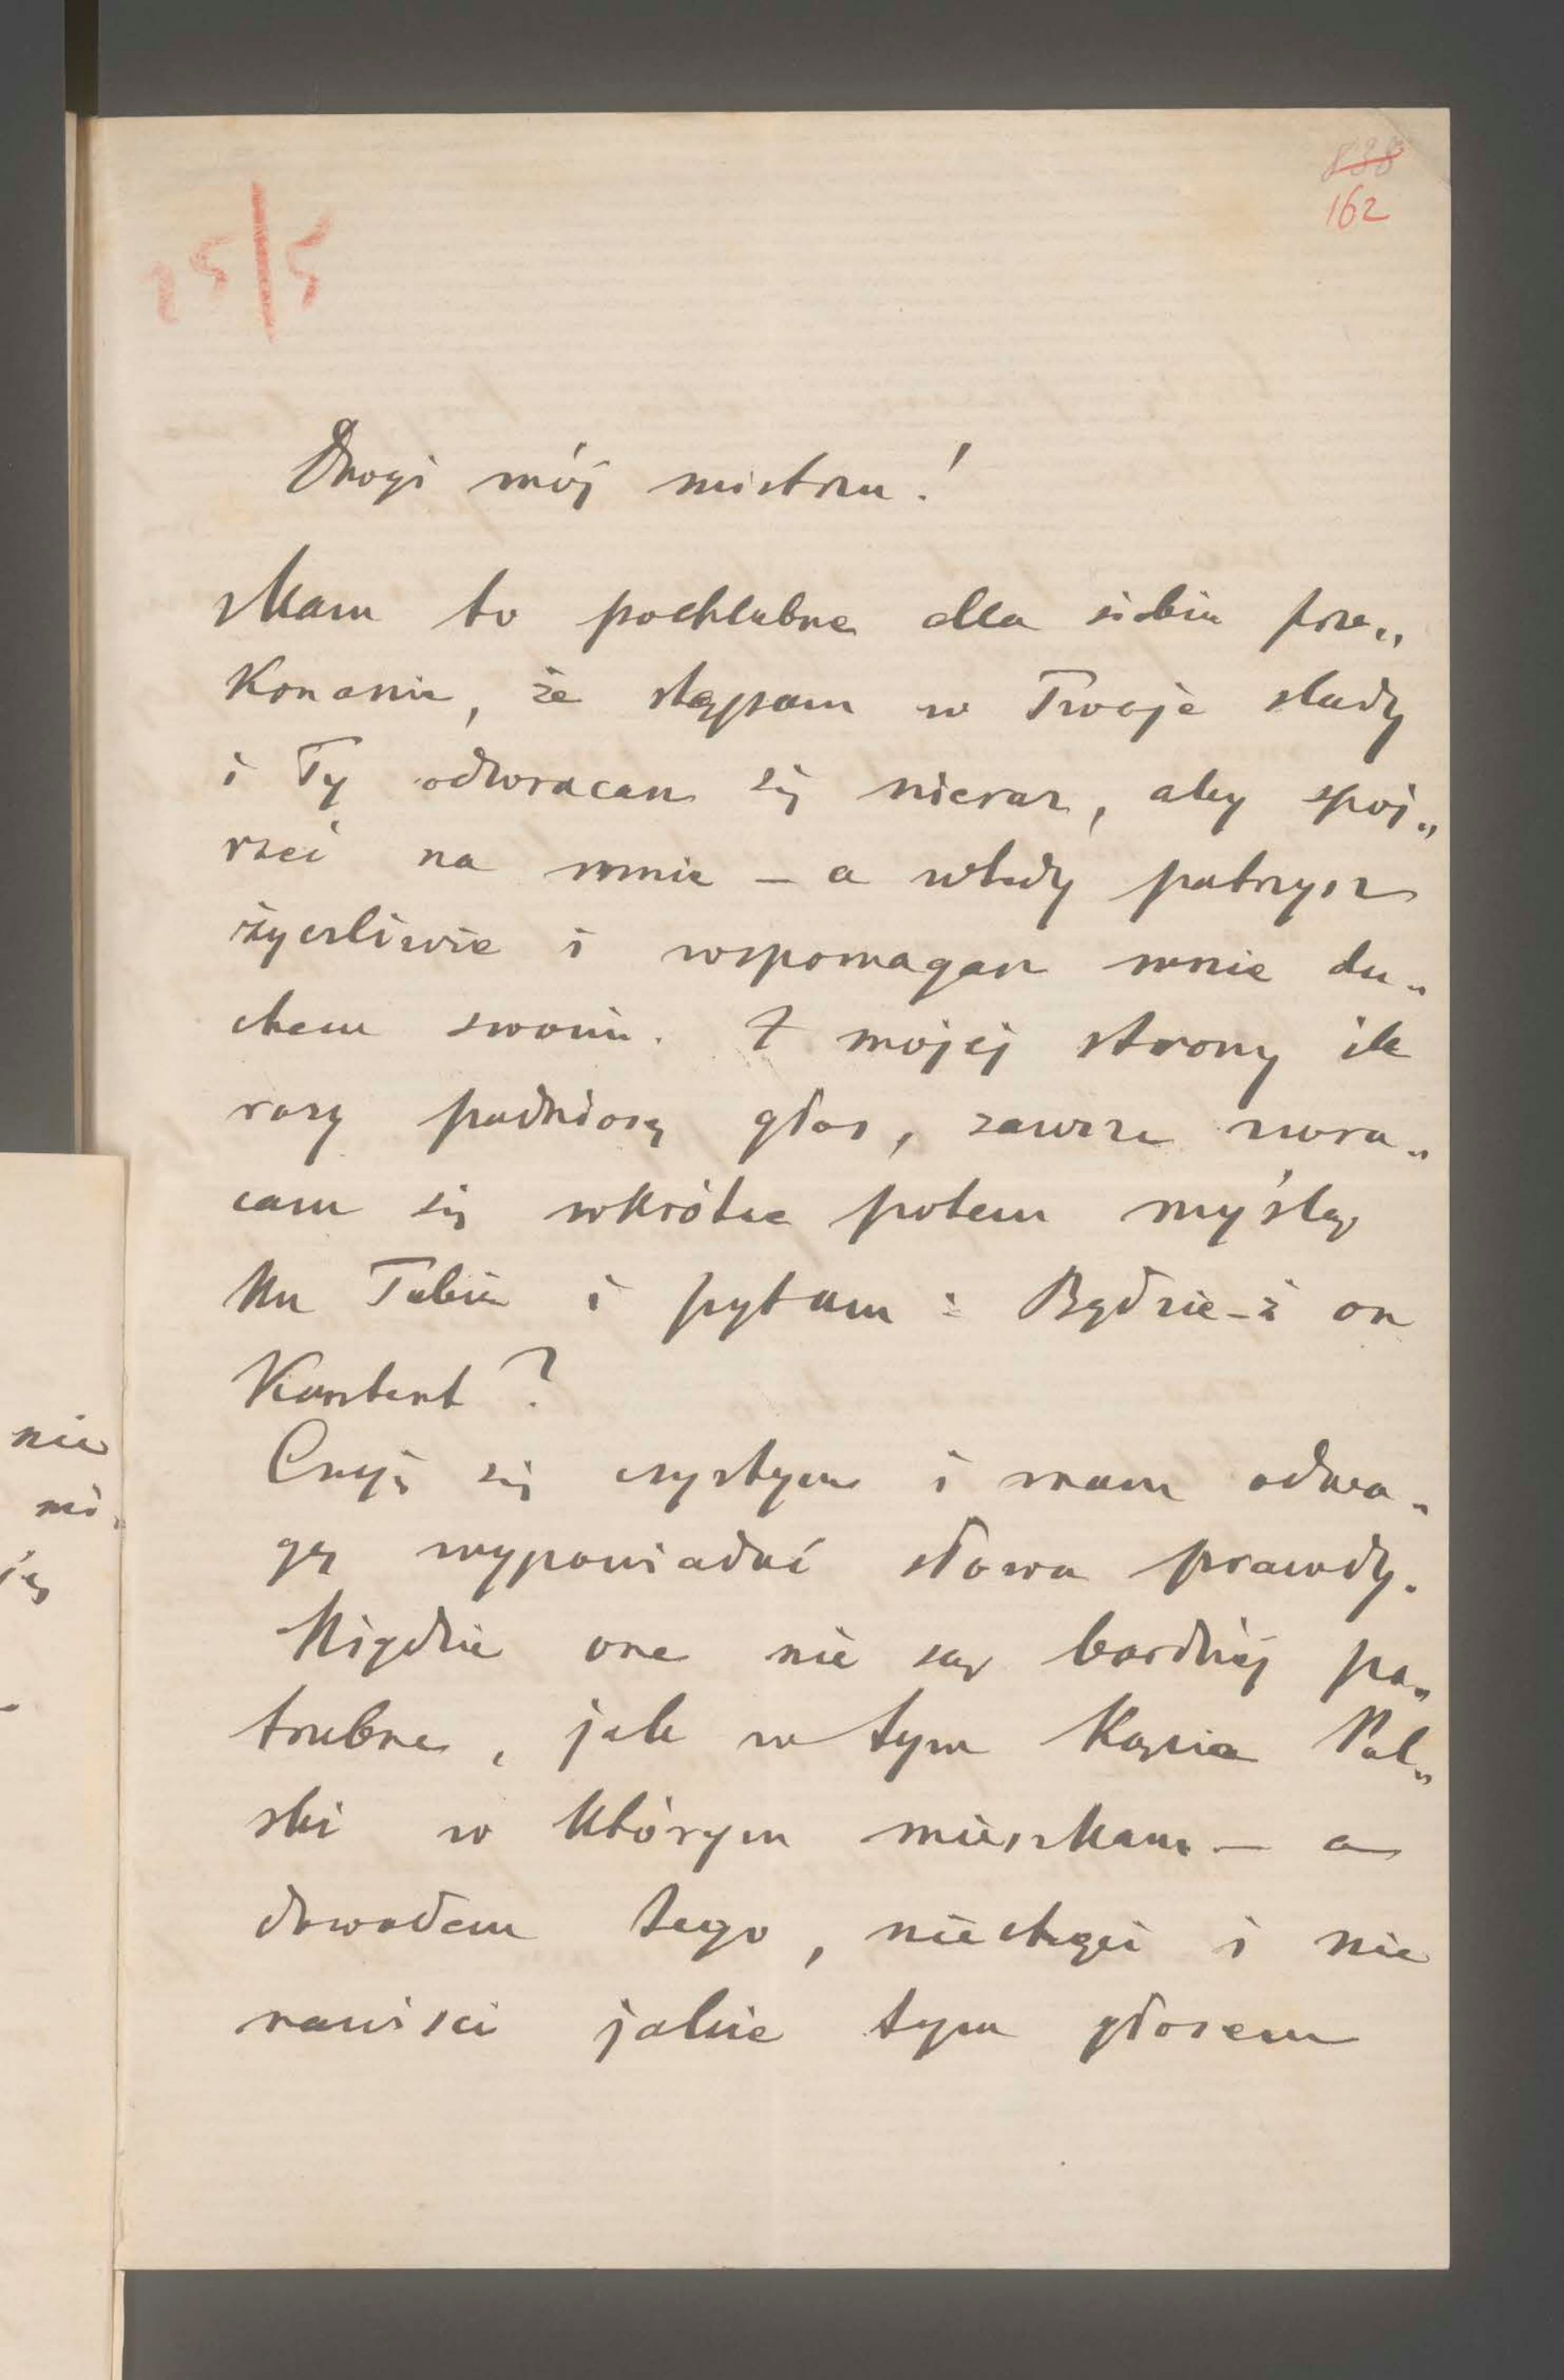 838
162
25/5
Drogi mój mistrzu!
Mam to pochlebne dla siebie prze„
konanie, że stąpam w Twoje ślady
i Ty odwracasz się nieraz, aby spoj„
rzeć na mnie – a wtedy patrzysz
życzliwie i wspomagasz mnie du„
chem swoim. Z mojej strony ile
razy podniosę głos, zawsze zwra„
cam się wkrótce potem myślą
ku Tobie i pytam: Będzie-ż on
kontent?
Czuję się czystym i mam odwa„
gę wypowiadać słowa prawdy.
Nigdzie one nie są bardziej po„
trzebne, jak w tym kącie Pol„
ski w którym mieszkam – a
dowodem tego, niechęci i nie
nawiści jakie tym głosem
nie
mi„
ją